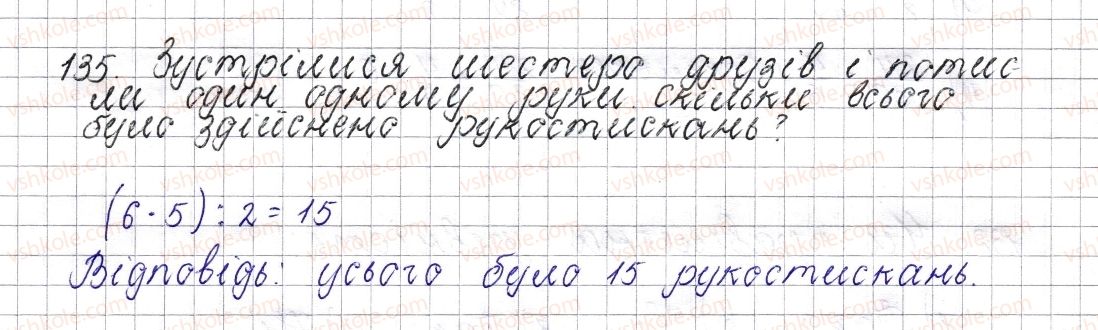 135. Зустрілися шестеро друзів і потис-
ли один одному руки. скільки всього
було здійснено рукостискань?
(6·5):2=15
Відповідь: усього було 15 рукостискань.